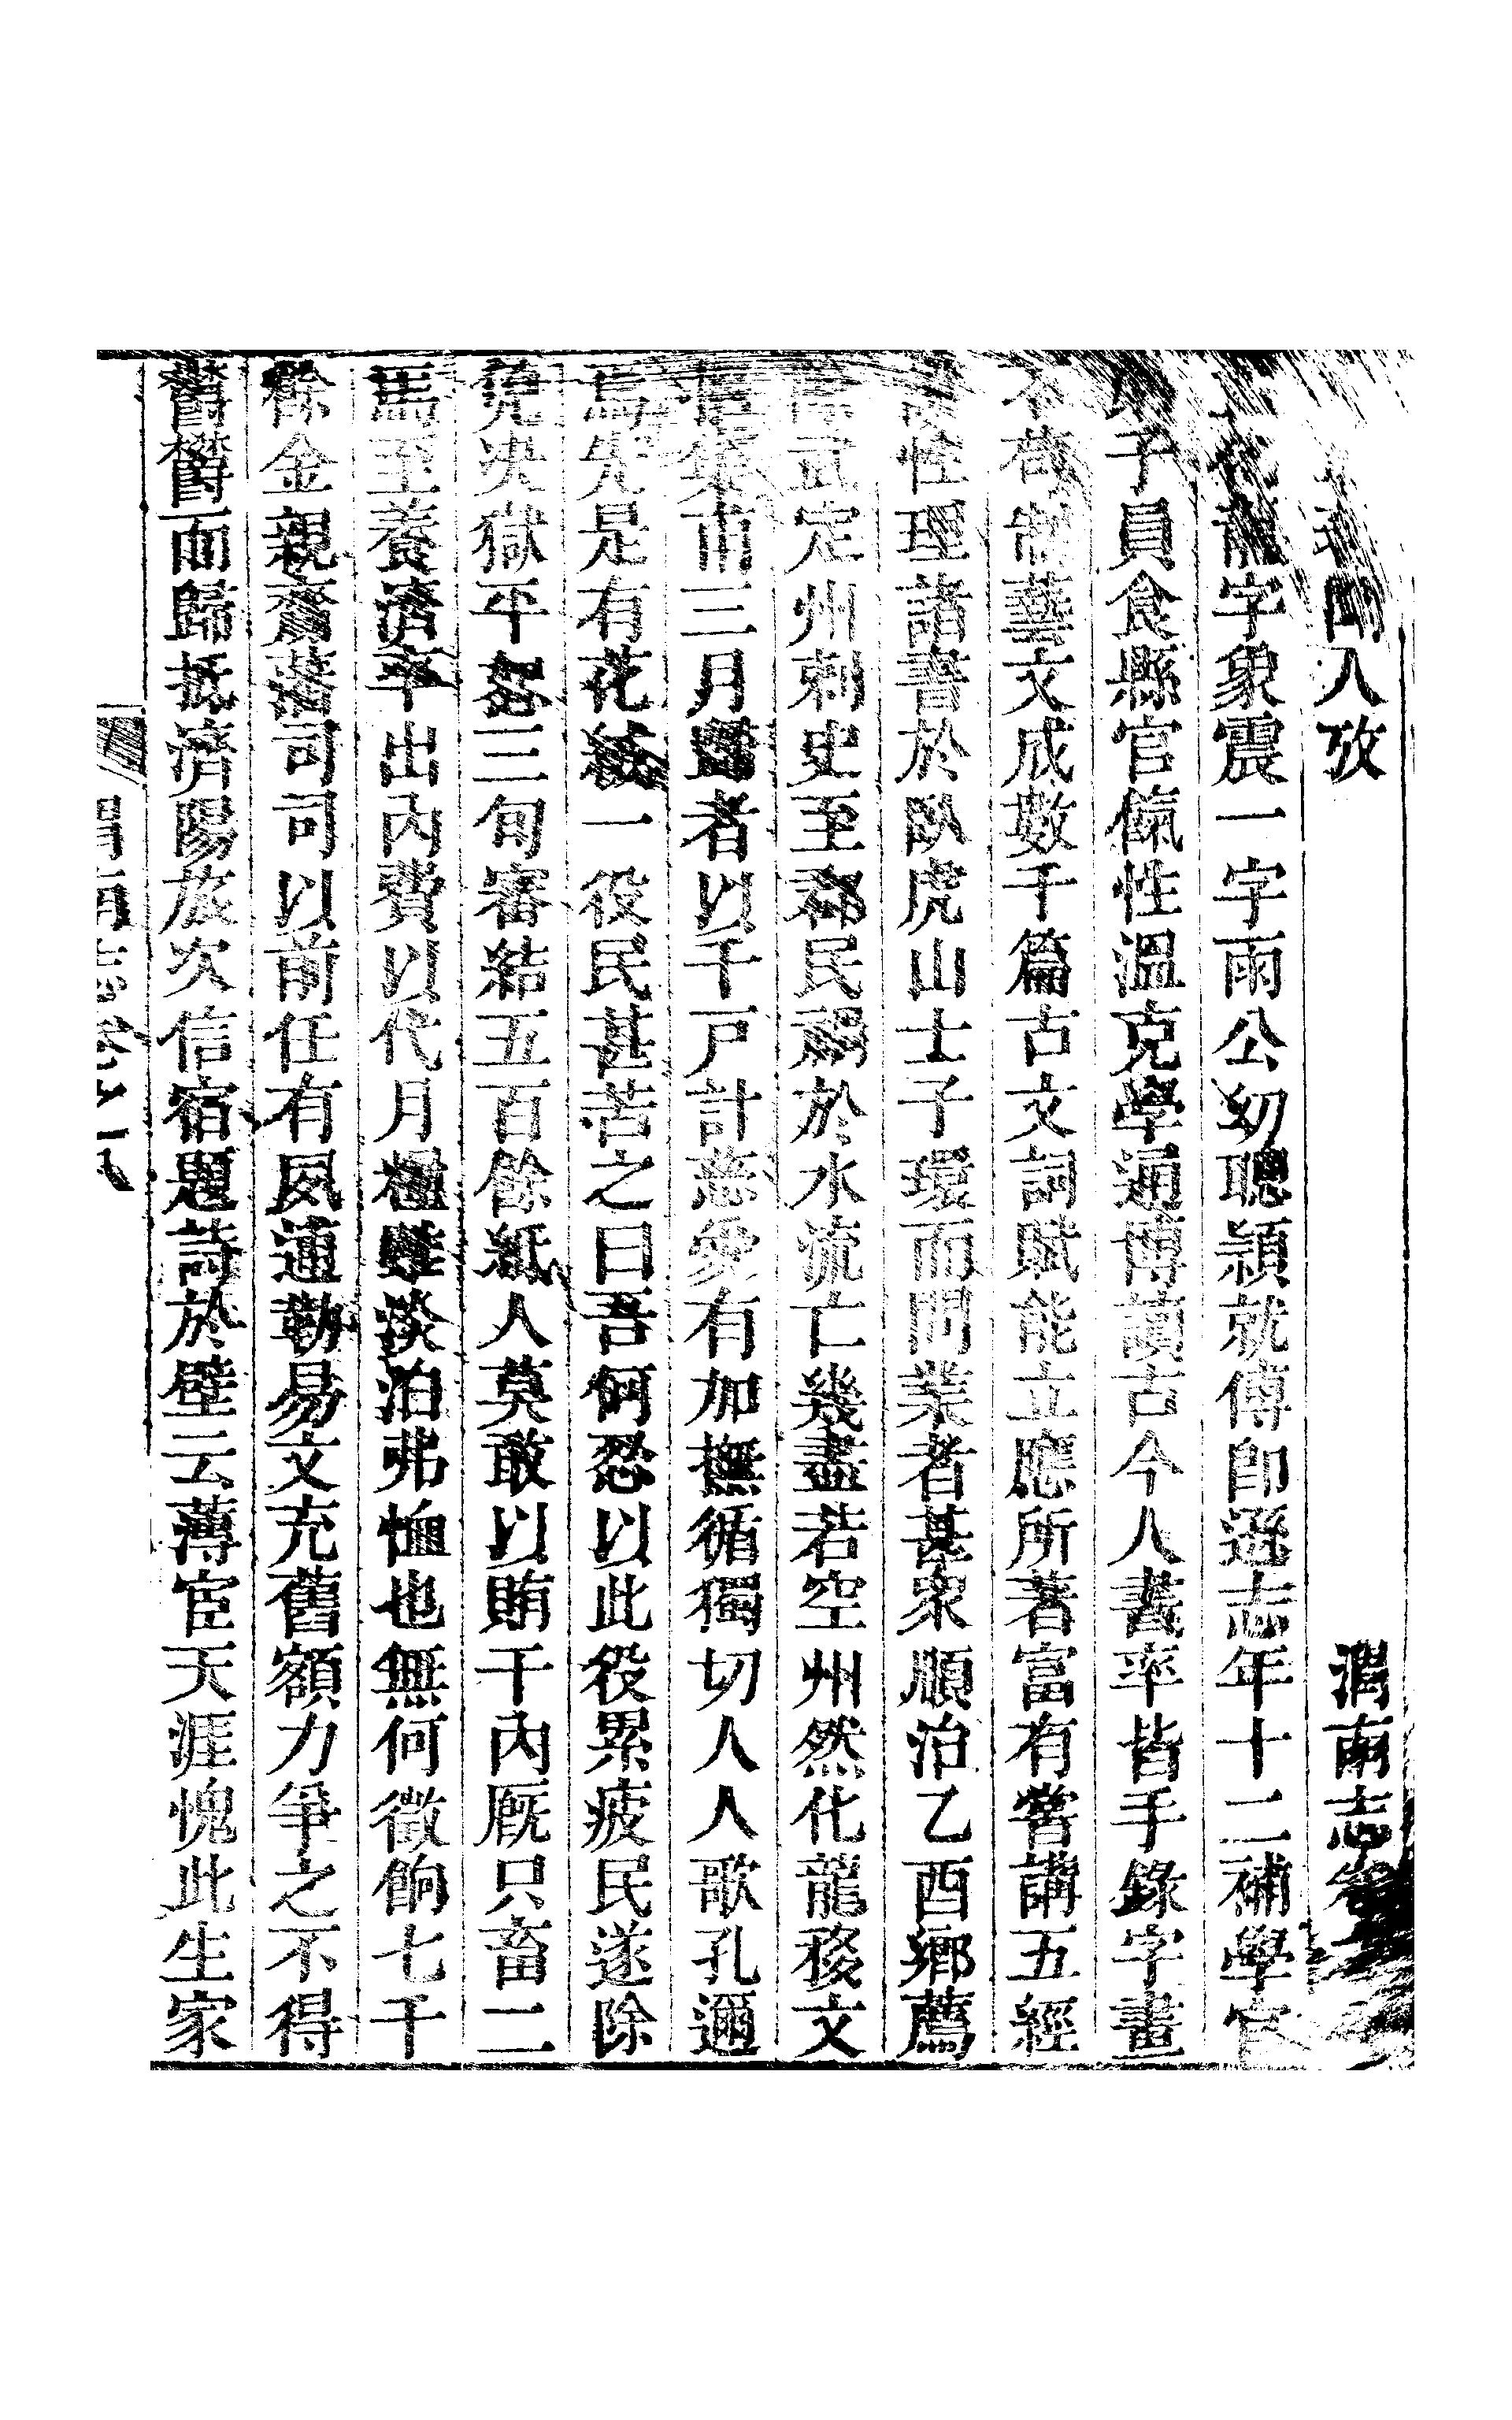 聞人攷 渭南志卷
龍字象震一字雨公幼聰頴就傅卽遜志年十二補學官
子員食縣官餼性溫克學通博讀古今人書率皆手錄字畫
不苟制藝文成數千篇古文詞賦能立應所著富有嘗講五經
性理諸書於臥虎山士子環而問業者甚衆順治乙酉鄉薦
武定州刺史至郡民溺於水流亡幾盡若空州然化龍移文
甫三月歸者以千戸計慈衆有加撫循獨切人人歌孔邇
焉先是有花絨一役民甚苦之曰吾何忍以此役累疲民遂除
免决獄平恕三旬審結五百餘紙人莫敢以賄干內厩只畜二
馬至養濟率出內費以代月糧雖淡泊弗恤也無何徵餉七千
餘金親齎藩司司以前任有夙逋勒易文充舊額力爭之不得
鬱鬱而歸抵濟陽旅次信宿題詩於壁云薄宦天涯愧此生家
渭南志卷